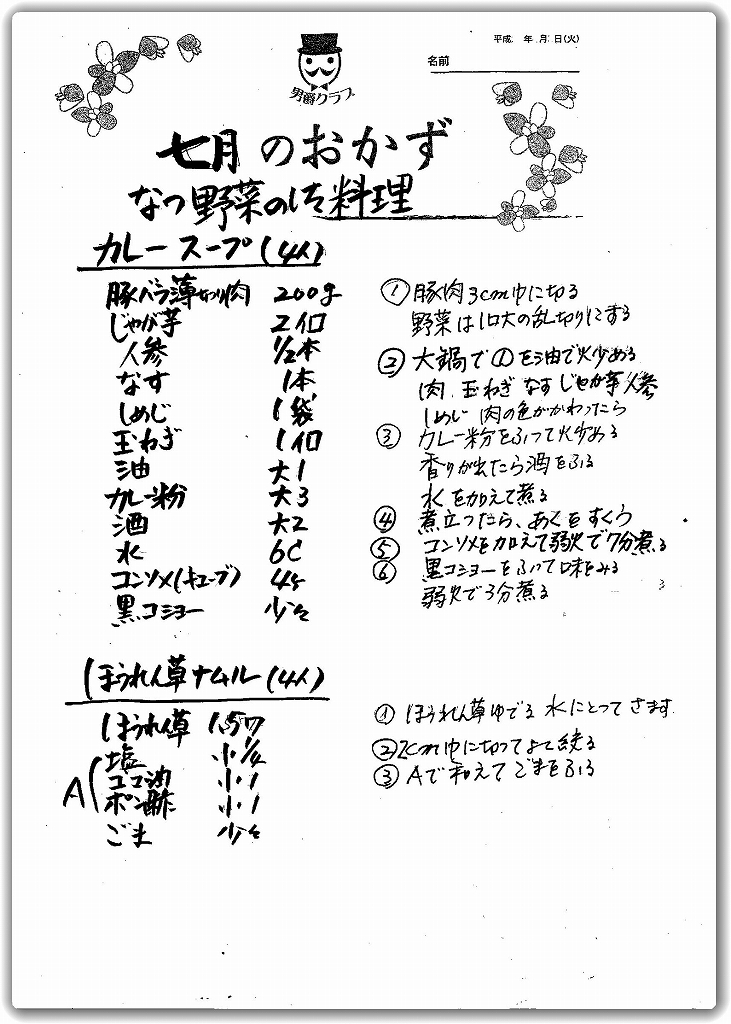 平成 年 月 日(火)
名前
男爵クラブ
七月のおかず
なつ野菜の 料理
カレースープ(4人)
豚バラ薄切り肉 200g
じゃが芋 2個
人参 1/2本
なす 1本
しめじ 1袋
玉ねぎ 1個
油 大1
カレー粉 大3
酒 大2
水 6C
コンソメ(キューブ) 4ケ
黒コショー 少々
①豚肉3cm巾に切る
野菜は1口大の乱切りにする
②大鍋で①を油で炒める
肉 玉ねぎ なす じゃが芋 人参
しめじ 肉の色がかわったら
③カレー粉をふって炒める
香りが出たら酒をふる
水を加えて煮る
④煮立ったら、あくをすくう
⑤コンソメを加えて弱火で7分煮る
⑥黒コショーをふって味をみる
弱火で3分煮る
ほうれん草ナムル(4人)
ほうれん草 1.5ワ
塩 小1/4
A ゴマ油 小1
ポン酢 小1
ごま 少々
①ほうれん草ゆでる 水にとってさます
②2cm巾に切ってよく絞る
③Aで和えてごまをふる